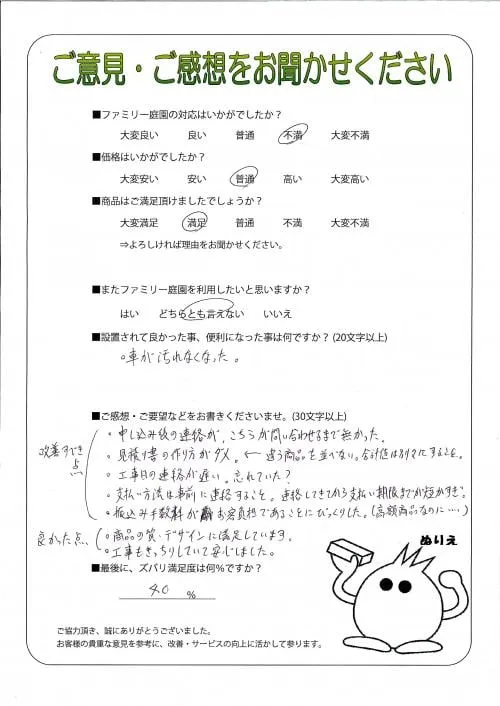 ご意見・ご感想をお聞かせください
■ファミリー庭園の対応はいかがでしたか？
大変良い　良い　普通　不満　大変不満
■価格はいかがでしたか？
大変安い　安い　普通　高い　大変高い
■商品はご満足頂けましたでしょうか？
大変満足　満足　普通　不満　大変不満
⇒よろしければ理由をお聞かせください。
■またファミリー庭園を利用したいと思いますか？
はい　どちらとも言えない　いいえ
■設置されて良かった事、便利になった事は何ですか？(20文字以上)
○車が汚れなくなった。
■ご感想・ご要望などをお書きくださいませ。(30文字以上)
改善すべき点
・申し込み後の連絡が、こちらが問い合わせるまで無かった。
・見積り書の作り方がダメ。← 違う商品を並べない。合計値は別々にすること。
・工事日の連絡が遅い。忘れていた？
・支払い方法は事前に連絡すること。連絡してきてから支払い期限までが短かすぎ。
・振込み手数料がお客負担であることにびっくりした。(高額商品なのに・・・・)
良かった点、
・商品の質・デザインに満足しています。
・工事もきっちりしていて安心しました。
■最後に、ズバリ満足度は何％ですか？
40 %
ぬりえ
ご協力頂き、誠にありがとうございました。
お客様の貴重な意見を参考に、改善・サービスの向上に活かして参ります。